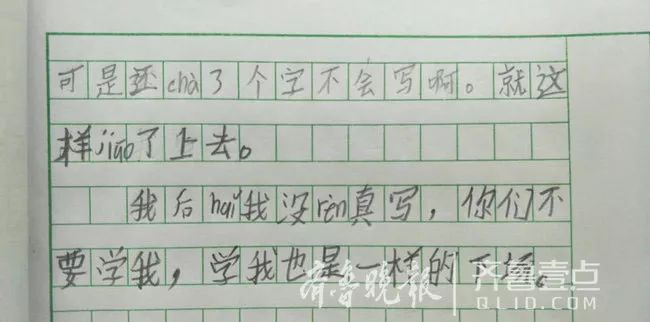 可是还chà了个字不会写啊。就这
样jiāo了上去。
我后huǐ我没rèn真写，你们不
要学我，学我也是一样的下场。
齐鲁晚报
齐鲁壹点
QLID.COM